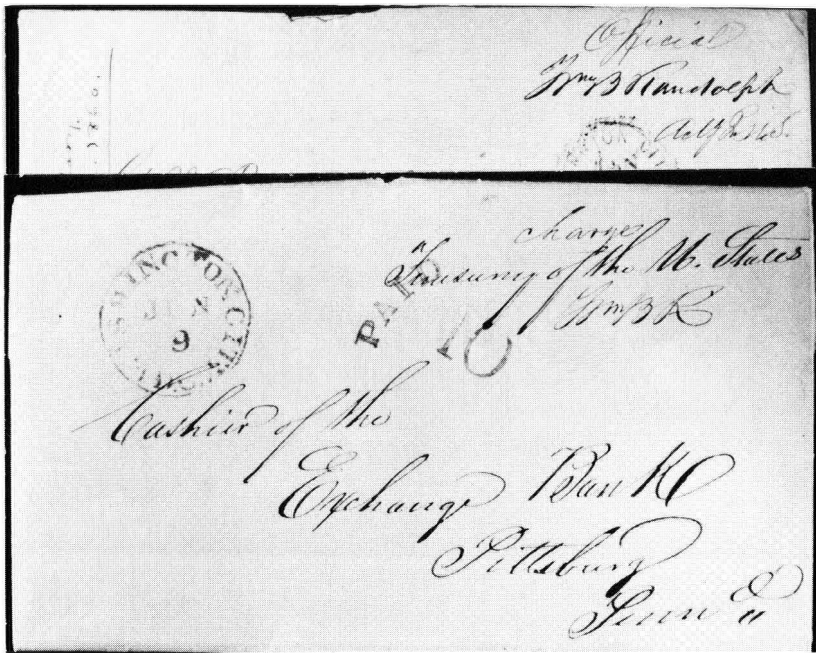 Official
Wm B Randolph
WASHINGTON CITY
JUN
9
PAID
10
Charge
Treasury of the U. States
Wm B R
Cashier of the
Exchange Bank
Pittsburg
Penn a